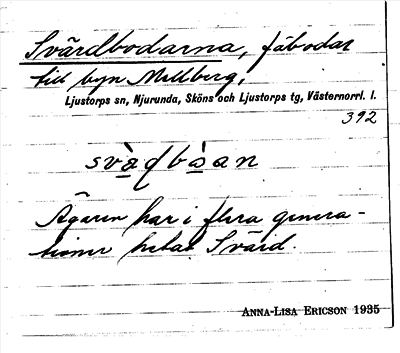 Svärdbodarna, fäbodar
till byn Mellberg,
Ljustorps sn, Njurunda, Sköns och Ljustorps tg, Västernorrl. l.
392
svạ̀ɖbạ̀san
Ägaren har i flera genera-
tioner hetat Svärd.
ANNA-LISA ERICSON 1935